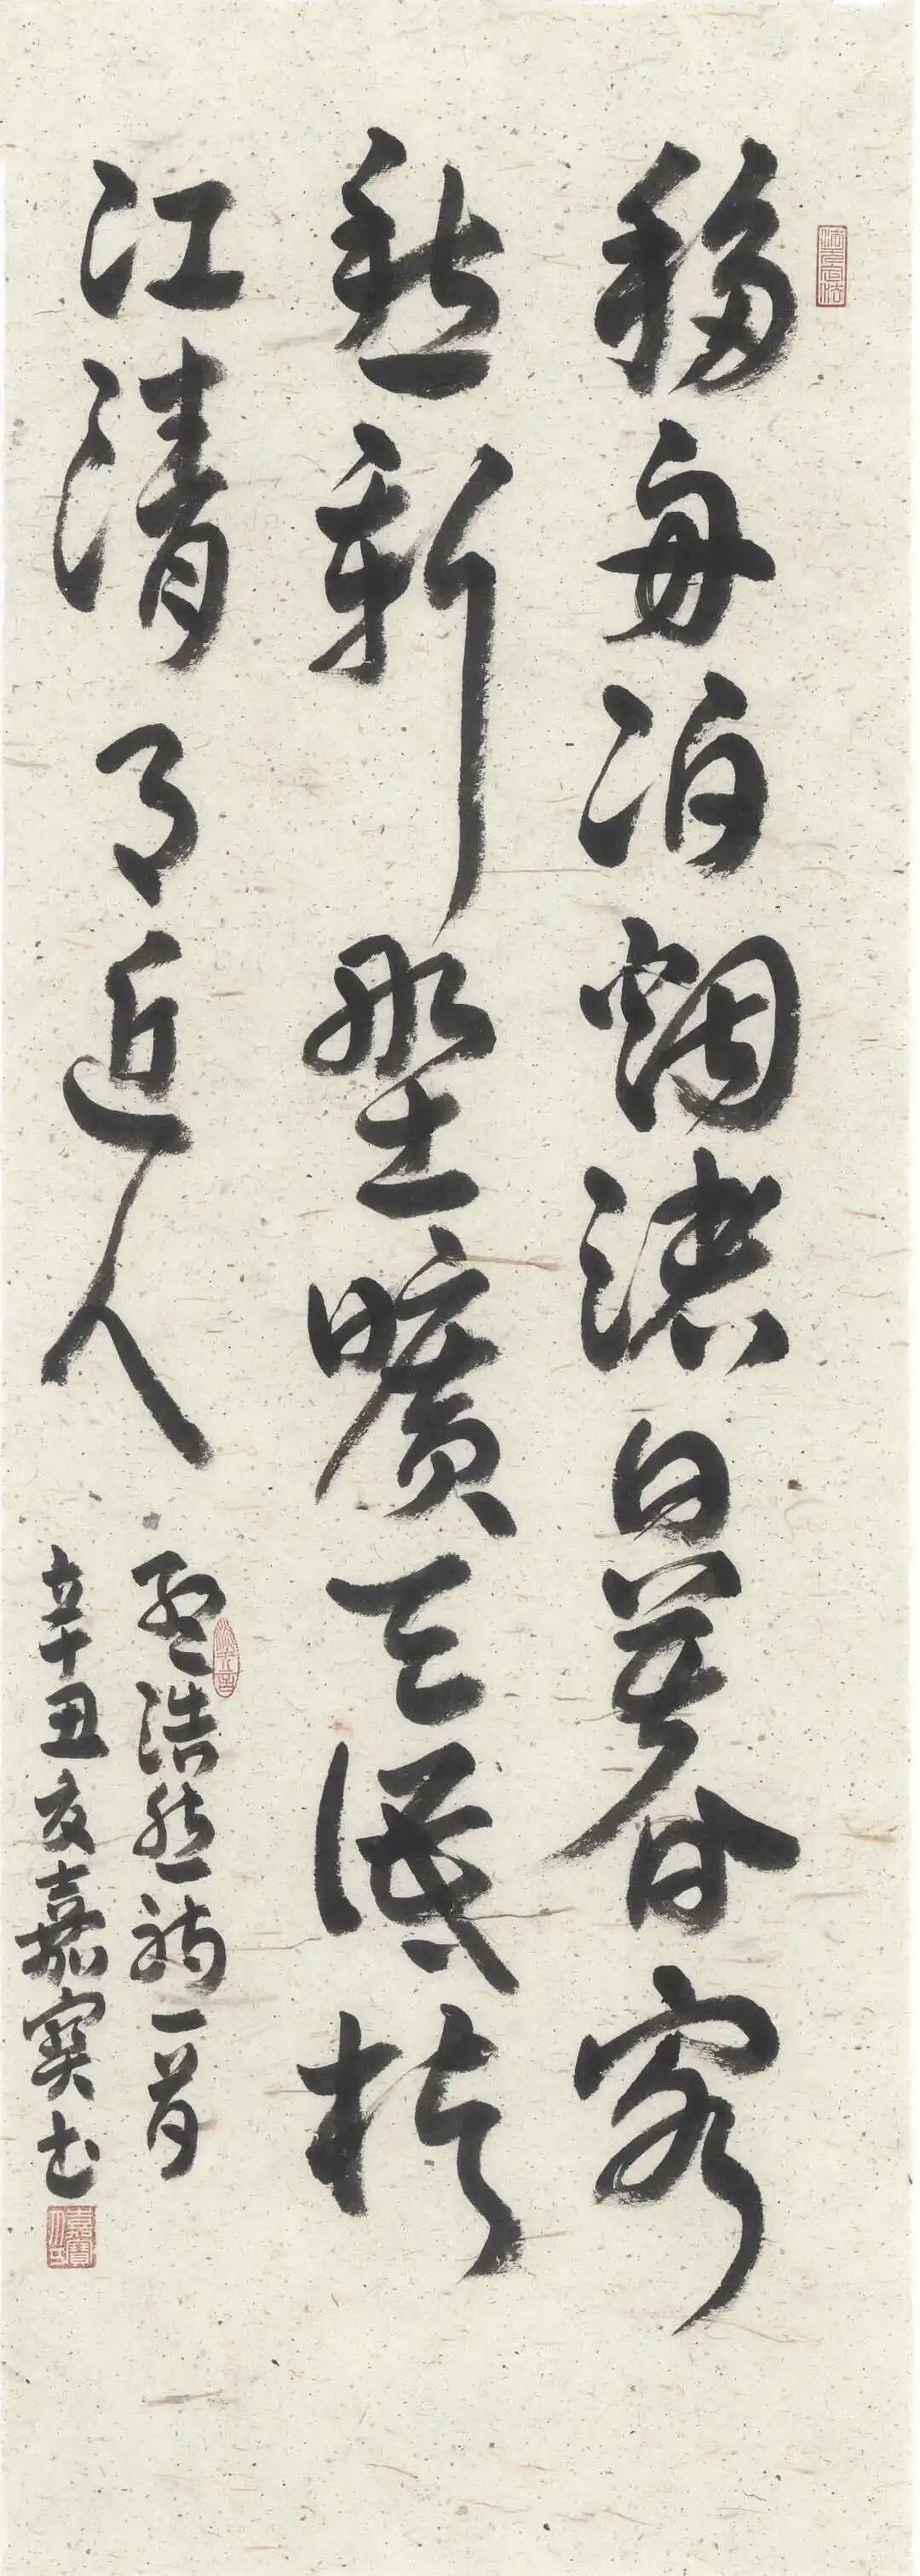 移舟泊烟渚日暮客
愁新野曠天低樹
江清月近人
孟浩然詩一首
辛丑夏嘉寶书
嘉寶